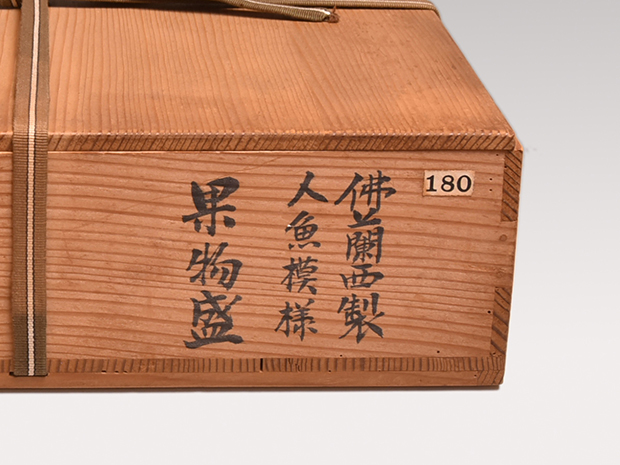 佛蘭西製
人魚模様
果物盛
180